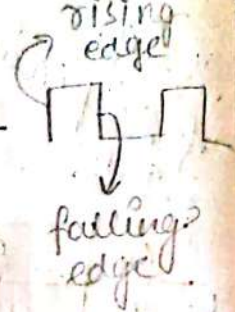 rising
edge
falling
edge